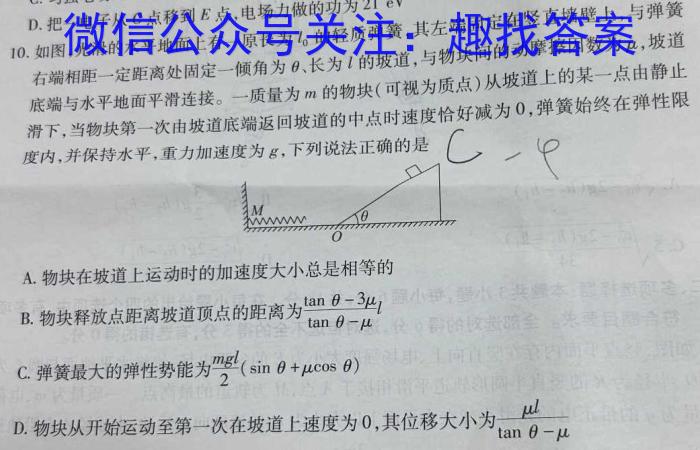 D. 把 电子从C点移到E点,电场力做的功为21 eV
微信公众号关注：趣找答案
10. 如图,光滑的水平地面上有一原长为l₀的轻质弹簧,其左端固定在竖直墙壁上,与弹簧
右端相距一定距离处固定一倾角为θ、长为l的坡道,与物块间的动摩擦因数为μ,坡道
底端与水平地面平滑连接。一质量为m的物块(可视为质点)从坡道上的某一点由静止
滑下,当物块第一次由坡道底端返回坡道的中点时速度恰好减为0,弹簧始终在弹性限
度内,并保持水平,重力加速度为g,下列说法正确的是
C
M
θ
O
A. 物块在坡道上运动时的加速度大小总是相等的
B. 物块释放点距离坡道顶点的距离为(tan θ-3μ)/(tan θ-μ) l
C. 弹簧最大的弹性势能为mgl/2(sin θ+μcos θ)
D. 物块从开始运动至第一次在坡道上速度为0,其位移大小为μl/(tan θ-μ)